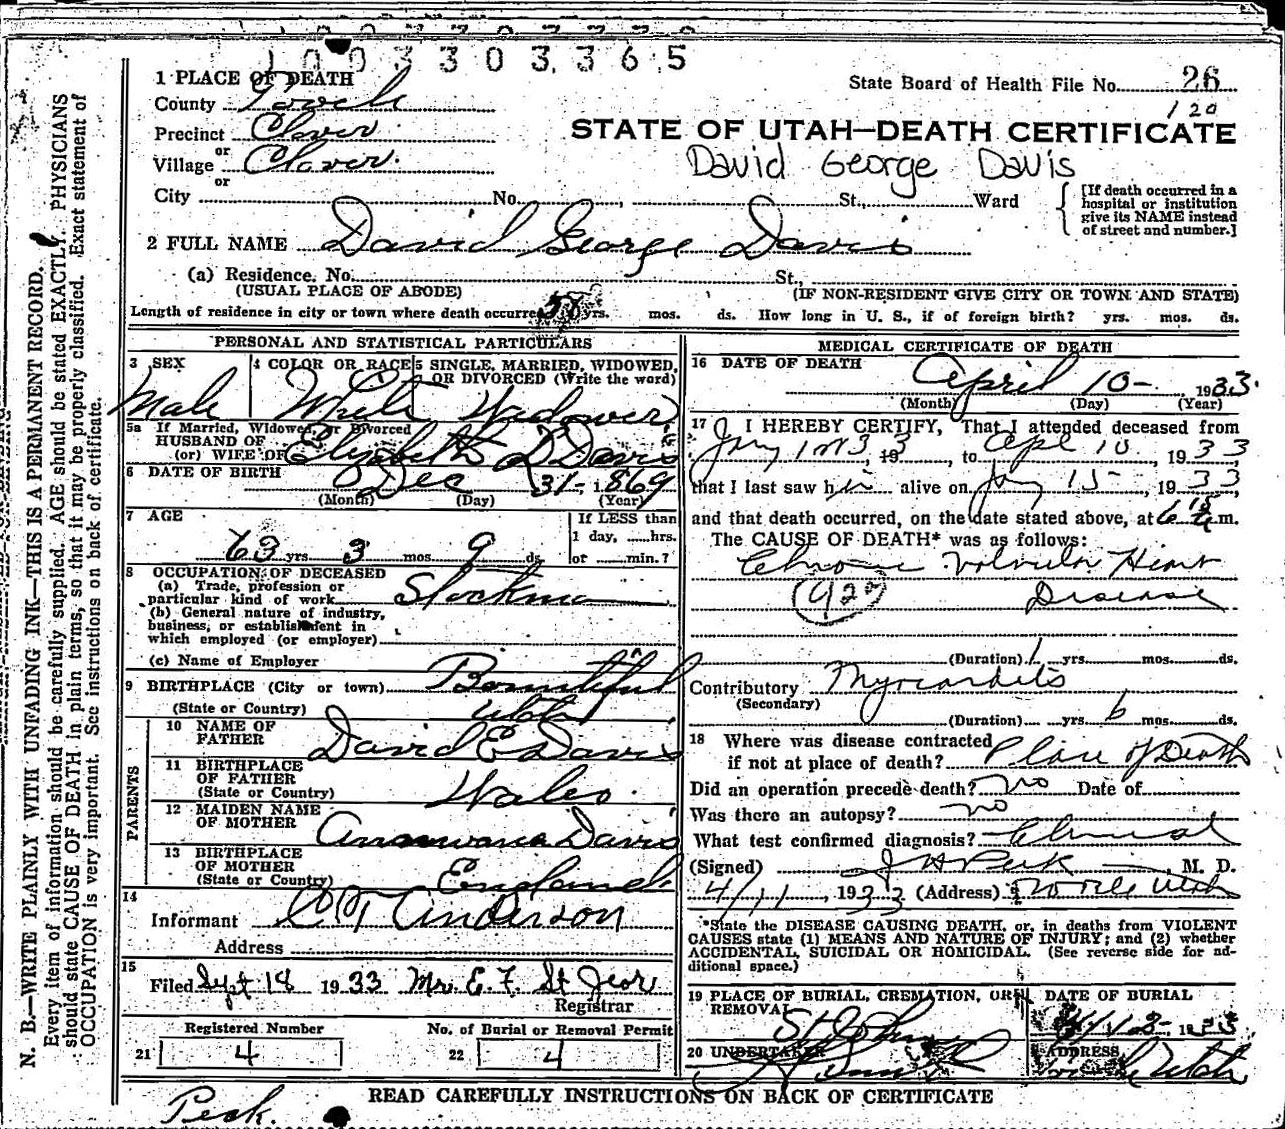 1003303365
1 PLACE OF DEATH
State Board of Health File No. 26
County Tooele
120
Precinct Clover
STATE OF UTAH—DEATH CERTIFICATE
or
Village Clover.
David George Davis
or
City No. , St., Ward
[If death occurred in a
hospital or institution
give its NAME instead
of street and number.]
2 FULL NAME David George Davis
(a) Residence. No. St.,
(USUAL PLACE OF ABODE) (IF NON-RESIDENT GIVE CITY OR TOWN AND STATE)
Length of residence in city or town where death occurred yrs. mos. ds. How long in U. S., if of foreign birth? yrs. mos. ds.
PERSONAL AND STATISTICAL PARTICULARS
3 SEX
Male
4 COLOR OR RACE
White
5 SINGLE, MARRIED, WIDOWED,
OR DIVORCED (Write the word)
Widower
5a If Married, Widowed, or Divorced
HUSBAND OF
(or) WIFE OF Elizabeth D Davis
6 DATE OF BIRTH Dec 31-, 1869
(Month) (Day) (Year)
7 AGE
63 yrs 3 mos 9 ds.
If LESS than
1 day, hrs.
or min.?
8 OCCUPATION OF DECEASED
(a) Trade, profession or
particular kind of work Stockman
(b) General nature of industry,
business, or establishment in
which employed (or employer)
(c) Name of Employer
9 BIRTHPLACE (City or town) Bountiful
(State or Country) Utah
PARENTS
10 NAME OF
FATHER David E Davis
11 BIRTHPLACE
OF FATHER
(State or Country) Wales.
12 MAIDEN NAME
OF MOTHER Davis
13 BIRTHPLACE
OF MOTHER
(State or Country) England
14
Informant Anderson
Address
15
Filed Sept 18 1933 Mrs. E. F. St Jeor
Registrar
Registered Number
21 4
No. of Burial or Removal Permit
22 4
MEDICAL CERTIFICATE OF DEATH
16 DATE OF DEATH
April 10- 1933.
(Month) (Day) (Year)
17 I HEREBY CERTIFY, That I attended deceased from
33, 19 , to Apl 10, 1933
that I last saw him alive on Jany 15, 1933,
and that death occurred, on the date stated above, at 6 15 m.
The CAUSE OF DEATH* was as follows:
Chronic Valvular Heart
Disease
(Duration) 1 yrs. mos. ds.
Contributory Myocarditis
(Secondary)
(Duration) yrs 6 mos. ds.
18 Where was disease contracted
if not at place of death? Place of Death
Did an operation precede death? no Date of
Was there an autopsy? no
What test confirmed diagnosis? Clinical
(Signed) J H Peck M. D.
4/11, 1933 (Address) Tooele Utah
*State the DISEASE CAUSING DEATH, or, in deaths from VIOLENT
CAUSES state (1) MEANS AND NATURE OF INJURY; and (2) whether
ACCIDENTAL, SUICIDAL OR HOMICIDAL. (See reverse side for ad-
ditional space.)
19 PLACE OF BURIAL, CREMATION, OR
REMOVAL
St John
DATE OF BURIAL
1933
20 UNDERTAKER
ADDRESS
Utah
READ CAREFULLY INSTRUCTIONS ON BACK OF CERTIFICATE
Peck.
N. B.—WRITE PLAINLY WITH UNFADING INK—THIS IS A PERMANENT RECORD.
Every item of information should be carefully supplied. AGE should be stated EXACTLY. PHYSICIANS
should state CAUSE OF DEATH in plain terms, so that it may be properly classified. Exact statement of
OCCUPATION is very important. See instructions on back of certificate.